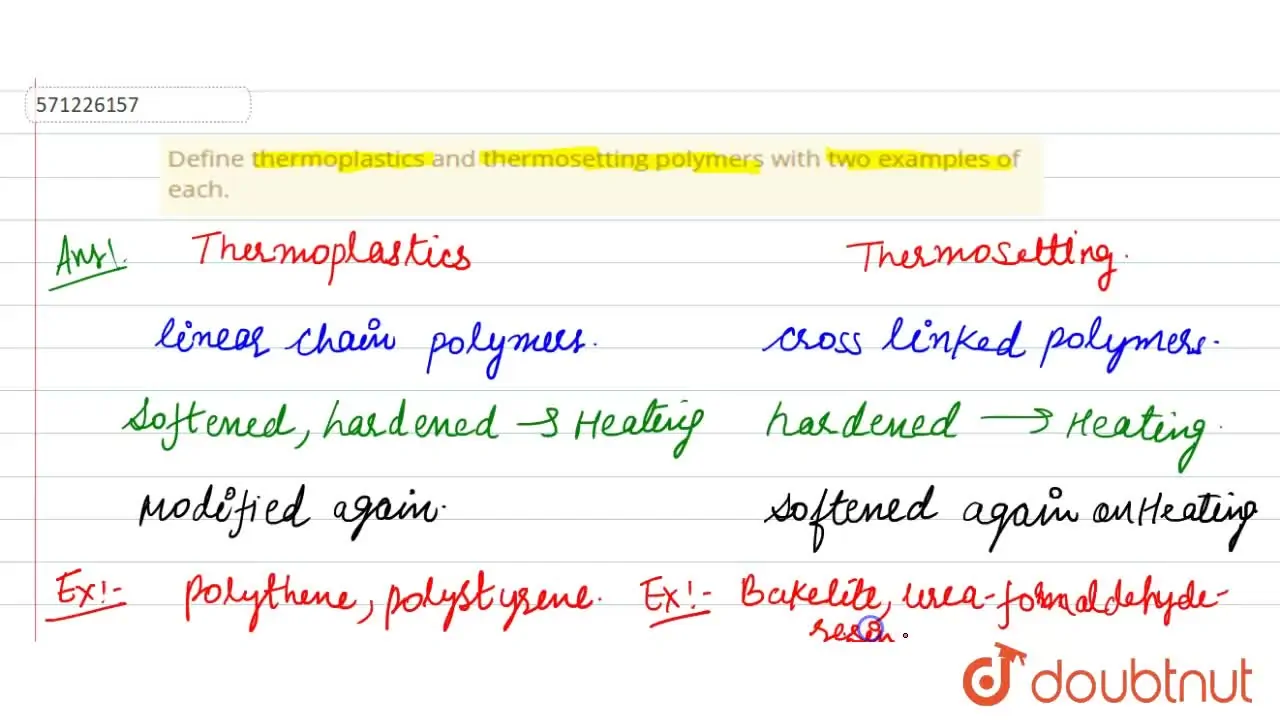 571226157
Define thermoplastics and thermosetting polymers with two examples of
each.
Ans!. Thermoplastics Thermosetting.
linear chain polymers. cross linked polymers.
Softened, hardened → Heating hardened → Heating.
Modified again. softened again on Heating
Ex!:- polythene, polystyrene. Ex!:- Bakelite, urea-formaldehyde-
resin.
doubtnut